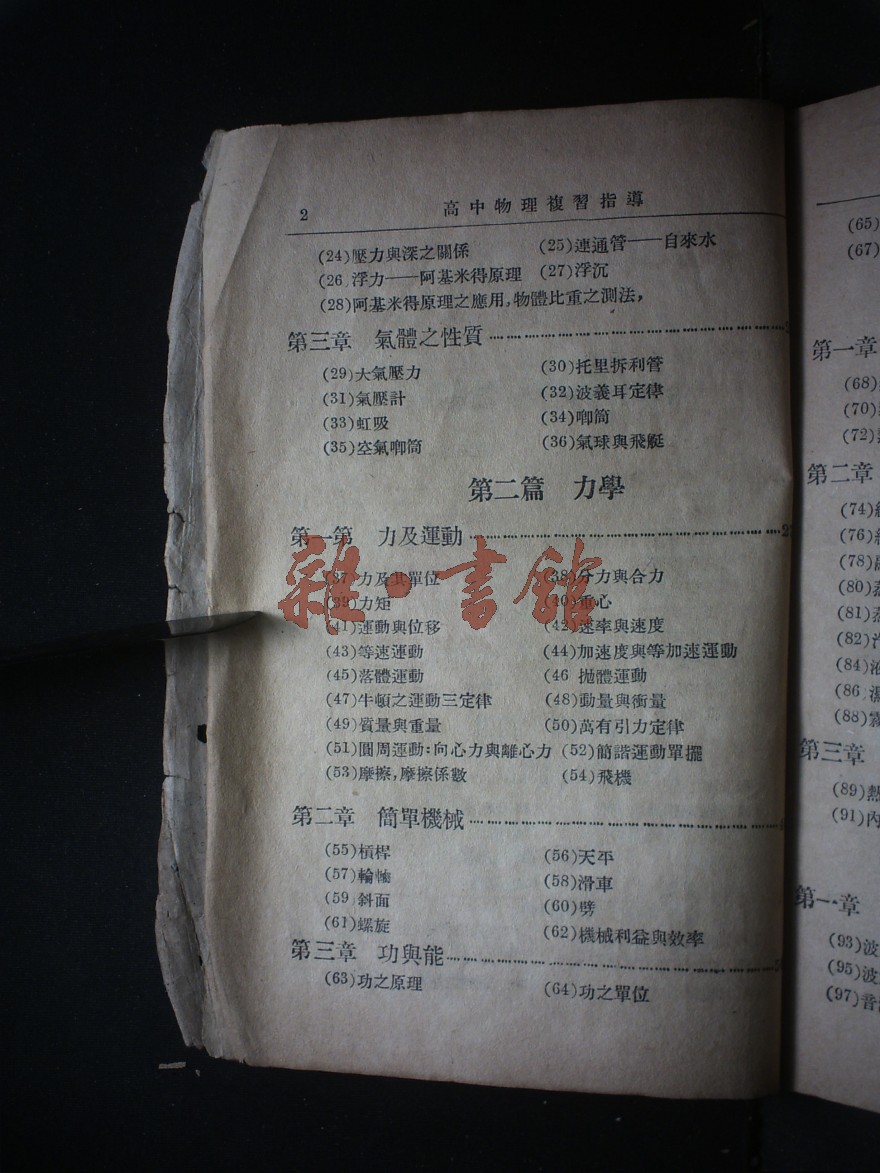 2 高中物理複習指導
(24)壓力與深之關係 (25)連通管——自來水
(26 浮力——阿基米得原理 (27)浮沉
(28)阿基米得原理之應用,物體比重之測法,
第三章 氣體之性質
(29)大氣壓力 (30)托里拆利管
(31)氣壓計 (32)波義耳定律
(33)虹吸 (34)喞筒
(35)空氣喞筒 (36)氣球與飛艇
第二篇 力學
第一第 力及運動
(37)力及其單位 (38)分力與合力
(39)力矩 (40)重心
(41)運動與位移 (42)速率與速度
(43)等速運動 (44)加速度與等加速運動
(45)落體運動 (46 拋體運動
(47)牛頓之運動三定律 (48)動量與衝量
(49)質量與重量 (50)萬有引力定律
(51)圓周運動:向心力與離心力 (52)簡諧運動單擺
(53)摩擦,摩擦係數 (54)飛機
第二章 簡單機械
(55)槓桿 (56)天平
(57)輪軸 (58)滑車
(59 斜面 (60)劈
(61)螺旋 (62)機械利益與效率
第三章 功與能
(63)功之原理 (64)功之單位
雜·書館
(65)
(67)
第一章
(68)
(70)
(72)
第二章
(74)
(76)
(78)
(80)
(81)
(82)
(84)
(86
(88)
第三章
(89)熱
(91)內
第一章
(93)波
(95)波
(97)音